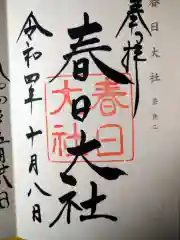 春日大社
奉拝
春日大社
春日大社
令和四年十月八日